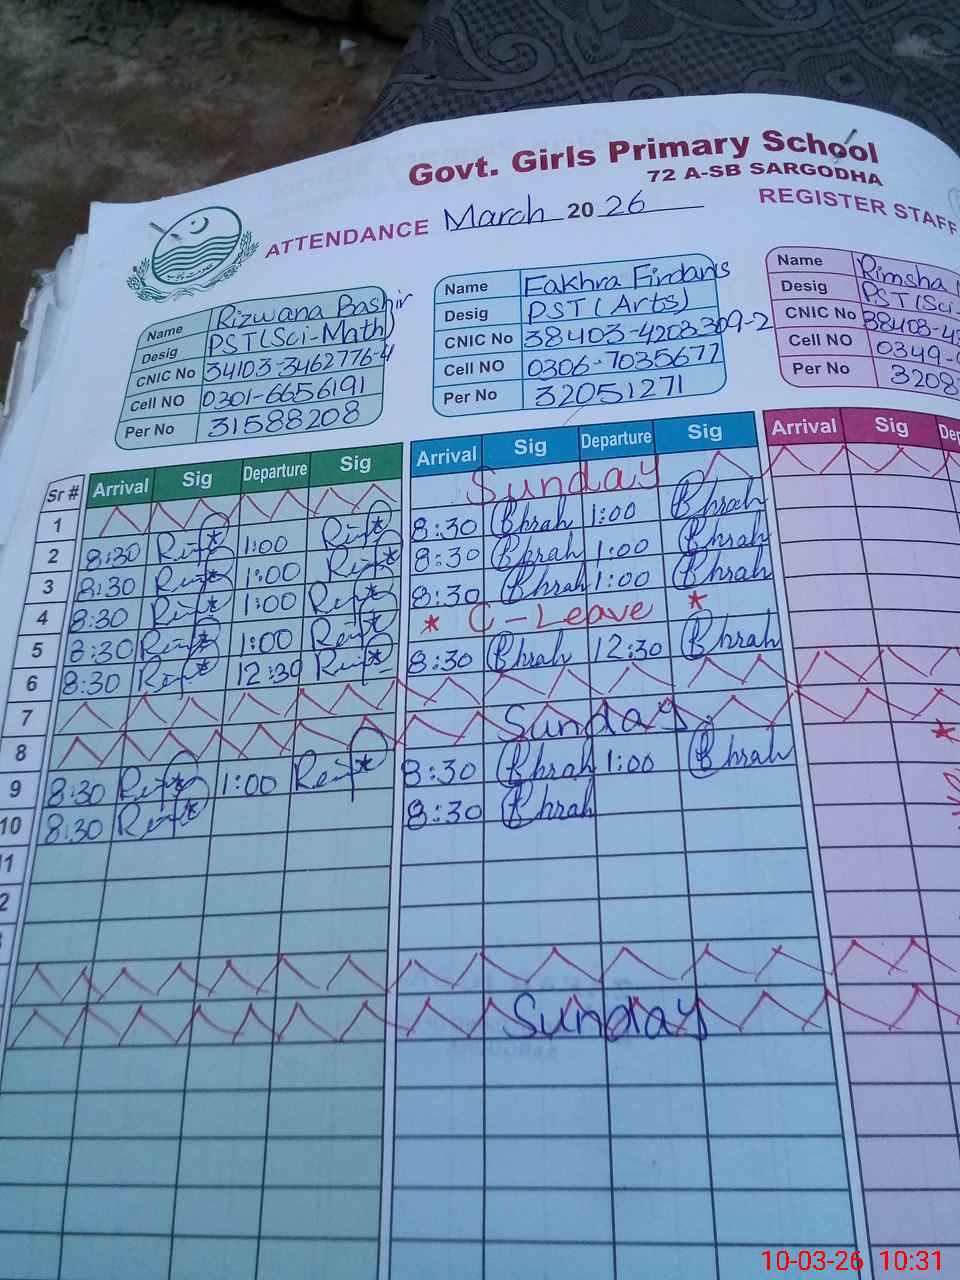 Govt. Girls Primary School
72 A-SB SARGODHA
ATTENDANCE March 20 26
REGISTER STAFF
Name Rizwana Bashir
Desig PST(Sci-Math)
CNIC No 34103-3462776-4
Cell NO 0301-6656191
Per No 31588208
Name Fakhra Firdaus
Desig PST(Arts)
CNIC No 38403-4203309-2
Cell NO 0306-7035677
Per No 32051271
Name Rimsha
Desig PST(Sci-
CNIC No 38403-43
Cell NO 0349-
Per No 3208
Sr # Arrival Sig Departure Sig Arrival Sig Departure Sig Arrival Sig Dep
1 Sunday
2 8:30 1:00 8:30 1:00
3 8:30 1:00 8:30 1:00
4 8:30 1:00 8:30 1:00
5 8:30 1:00 * C-Leave *
6 8:30 12:30 8:30 12:30
7
8 Sunday
9 8:30 1:00 8:30 1:00
10 8:30 8:30
Sunday
10-03-26 10:31